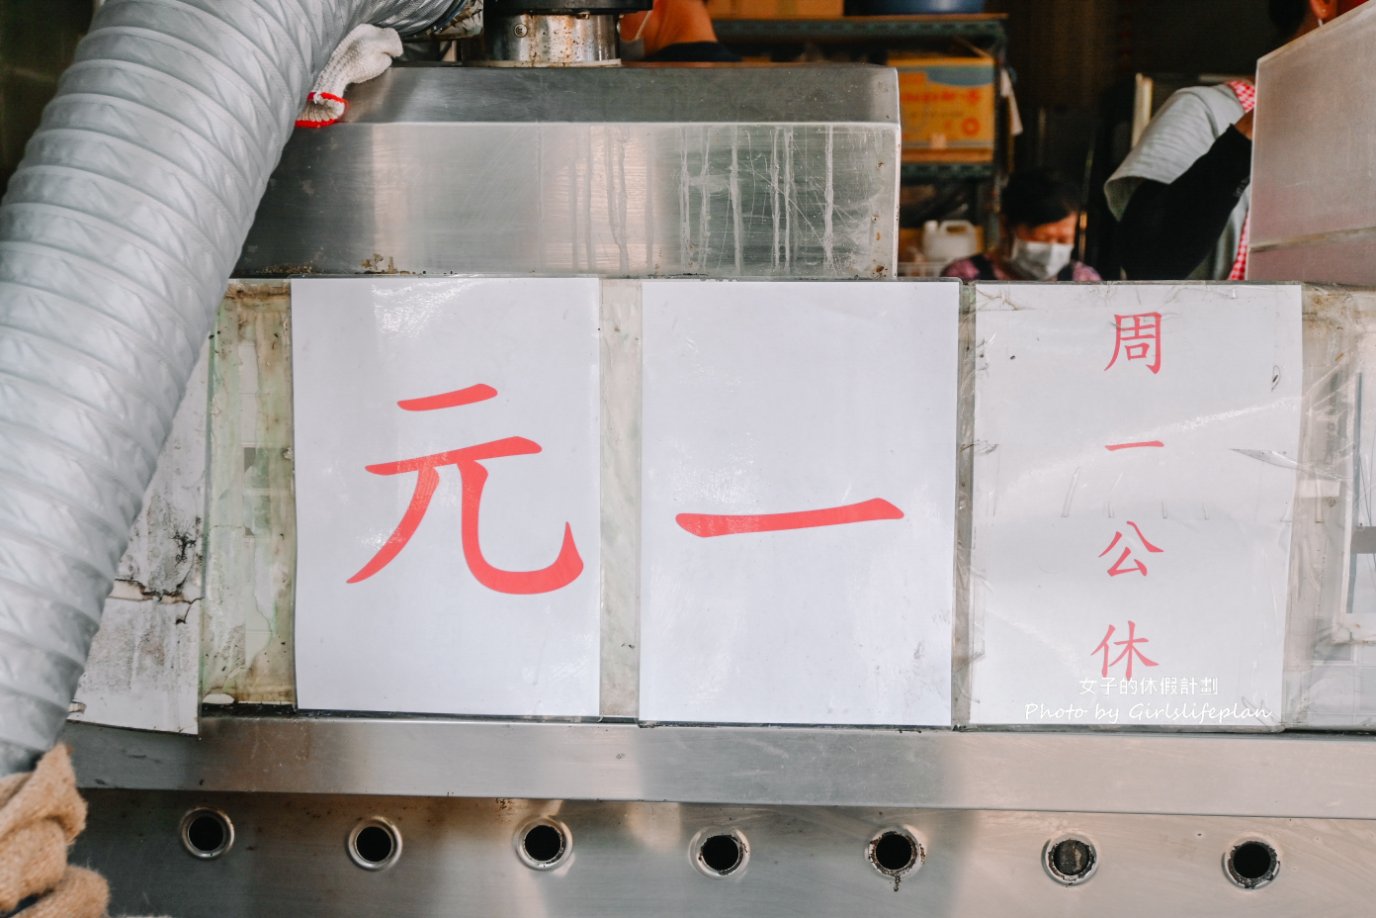 元
一
周
一
公
休
女子的休假計劃
Photo by Girlslifeplan